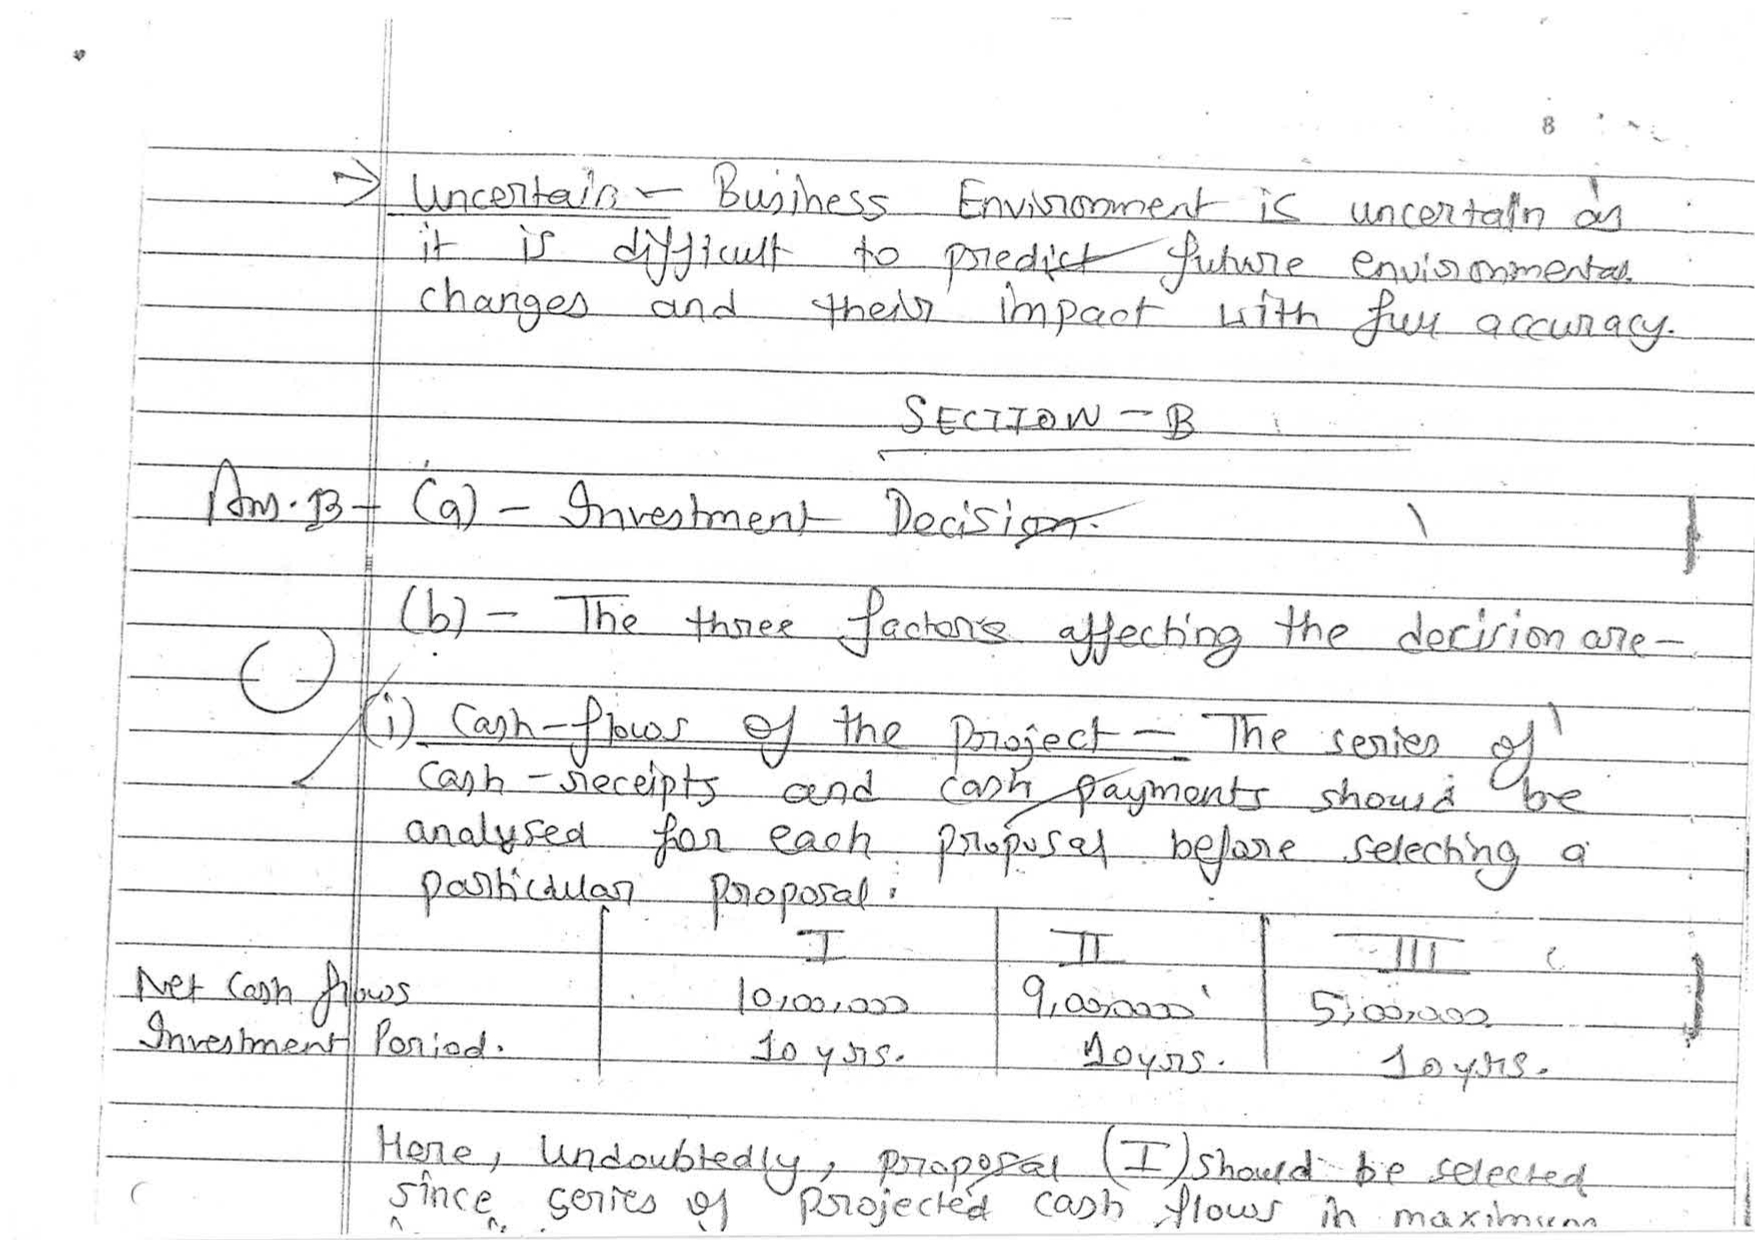 8
→ Uncertain - Business Environment is uncertain as
it is difficult to predict future environmental
changes and their impact with full accuracy.
SECTION - B
Ans. 13 - (a) - Investment Decision.
(b) - The three factors affecting the decision are -
(i) Cash-flows of the project - The series of
cash-receipts and cash payments should be
analysed for each proposal before selecting a
particular proposal.
I II III
Net Cash flows 10,00,000 9,00,000 5,00,000
Investment Period. 10 yrs. 10 yrs. 10 yrs.
Here, undoubtedly, proposal (I) should be selected
since series of projected cash flows in maximum